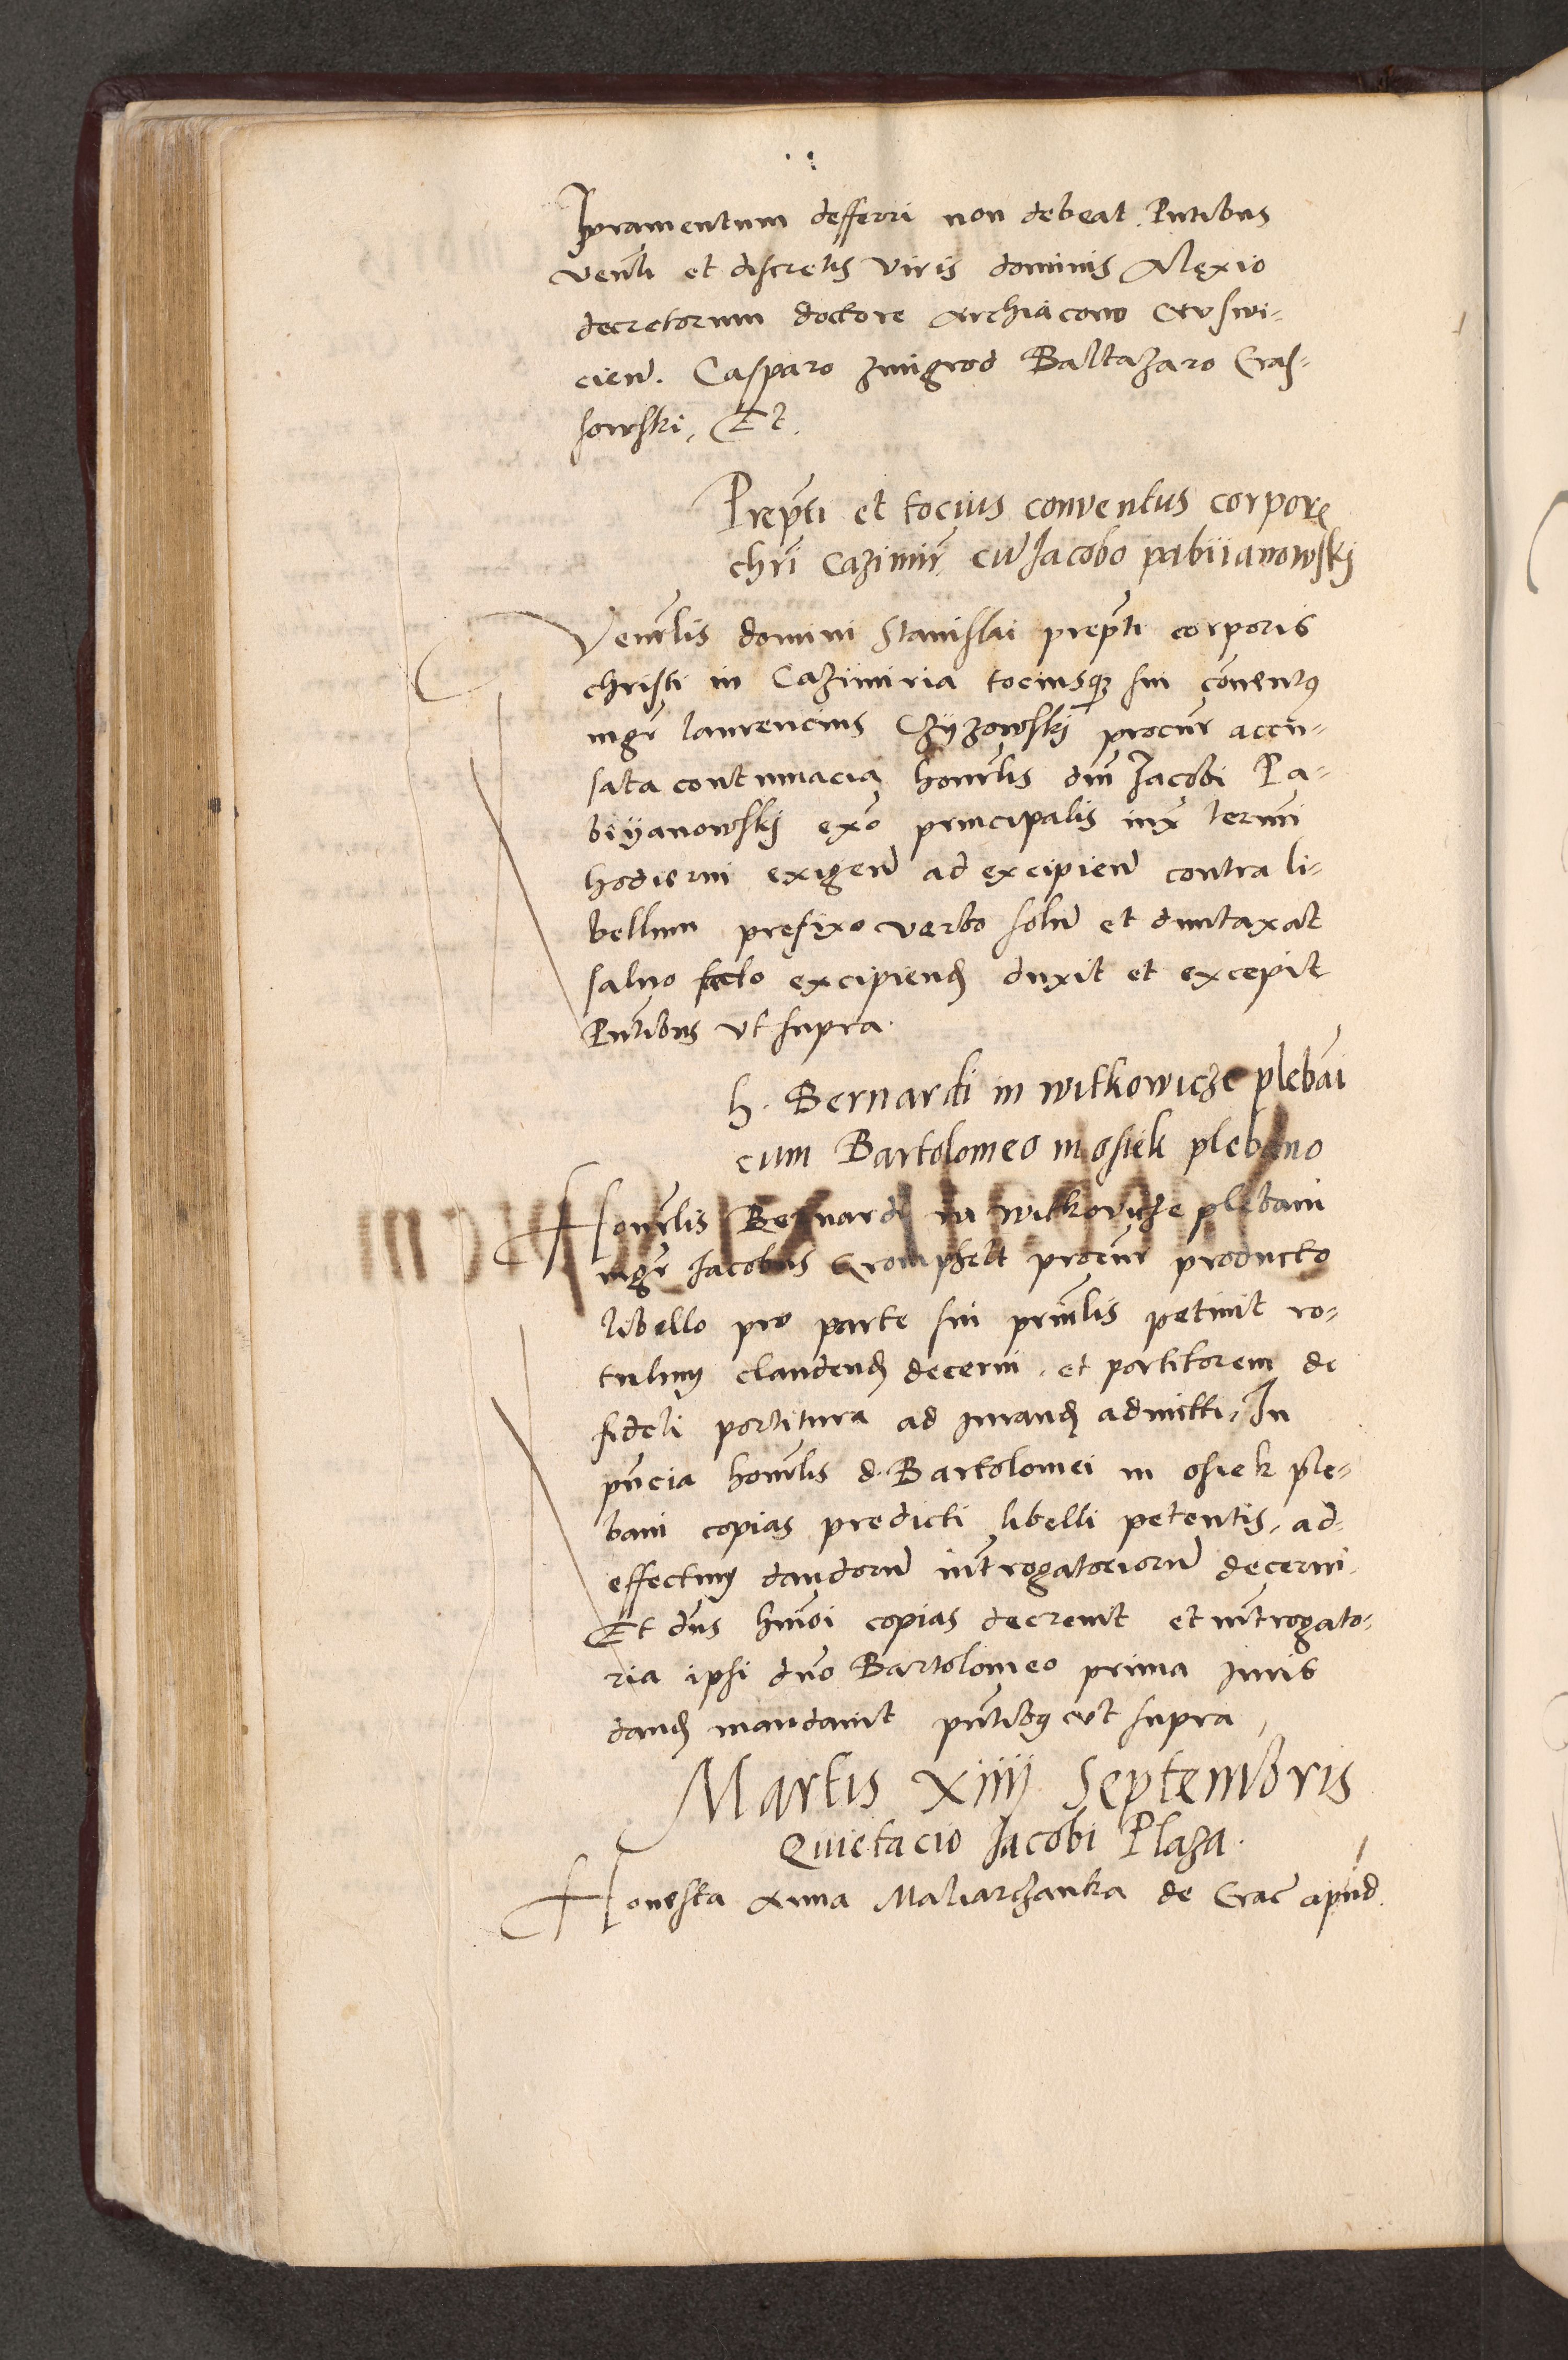 Iuramentum defferri non debeat. Pntibus
venli et discretis viris dominis Alexio
decretorum doctore Archiacono
cien. Casparo zmigrod Baltazaro Cras-
sowski. Et.
Prepti et tocius conventus corpore
chri Cazimir cu Iacobo pabiianowskj
Venrlis domini Stanislai prepti corporis
christi in Cazimiria tociusqz sui conventus
mgr laurencius Czÿzowskj procur accu-
sata contumacia honrlis dni Iacobi Pa-
biÿanowskj exo principalis iux termi
hodierni exigen ad excipien contra li-
bellum prefixo verbo solu et duntaxat
saluo facto excipiend duxit et excepit
Pntibus vt supra.
h. Bernardi in witkowicze plebai
cum Bartolomeo in osiek plebano
Honrlis Bernardi in witkovicze plebani
mgr Iacobus Gromphelt procur producto
libello pro parte sui prinlis petiuit ro-
tulum claudend decerni. et portitorem de
fideli portitura ad iurand admitti, In
pncia honrlis d. Bartolomei in osiek ple-
bani copias predicti libelli petentis, ad
effectum dandoru introgatorioru decerni.
Et dns hmoi copias decreuit et introgato-
ria ipsi dno Bartolomeo prima iuris
dand mandauit pntibus vt supra,
Martis xiiij Septembris
Quietacio Iacobi Plaza.
Honesta Anna Maliarczanka de Crac apud